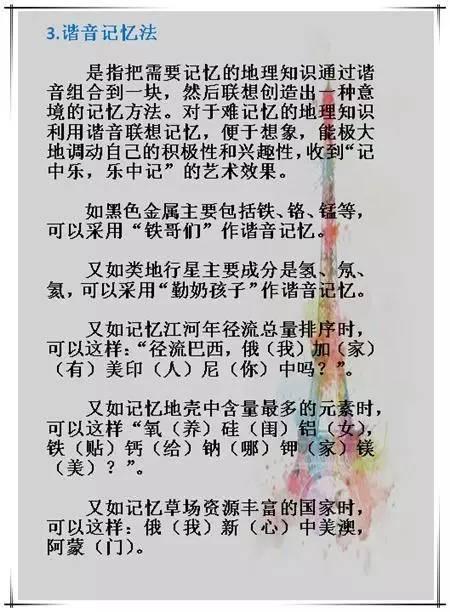 3.谐音记忆法
是指把需要记忆的地理知识通过谐
音组合到一块，然后联想创造出一种意
境的记忆方法。对于难记忆的地理知识
利用谐音联想记忆，便于想象，能极大
地调动自己的积极性和兴趣性，收到“记
中乐，乐中记”的艺术效果。
如黑色金属主要包括铁、铬、锰等，
可以采用“铁哥们”作谐音记忆。
又如类地行星主要成分是氢、氖、
氦，可以采用“勤奶孩子”作谐音记忆。
又如记忆江河年径流总量排序时，
可以这样：“径流巴西，俄（我）加（家）
（有）美印（人）尼（你）中吗？”。
又如记忆地壳中含量最多的元素时，
可以这样“氧（养）硅（闺）铝（女），
铁（贴）钙（给）钠（哪）钾（家）镁
（美）？”。
又如记忆草场资源丰富的国家时，
可以这样：俄（我）新（心）中美澳，
阿蒙（门）。